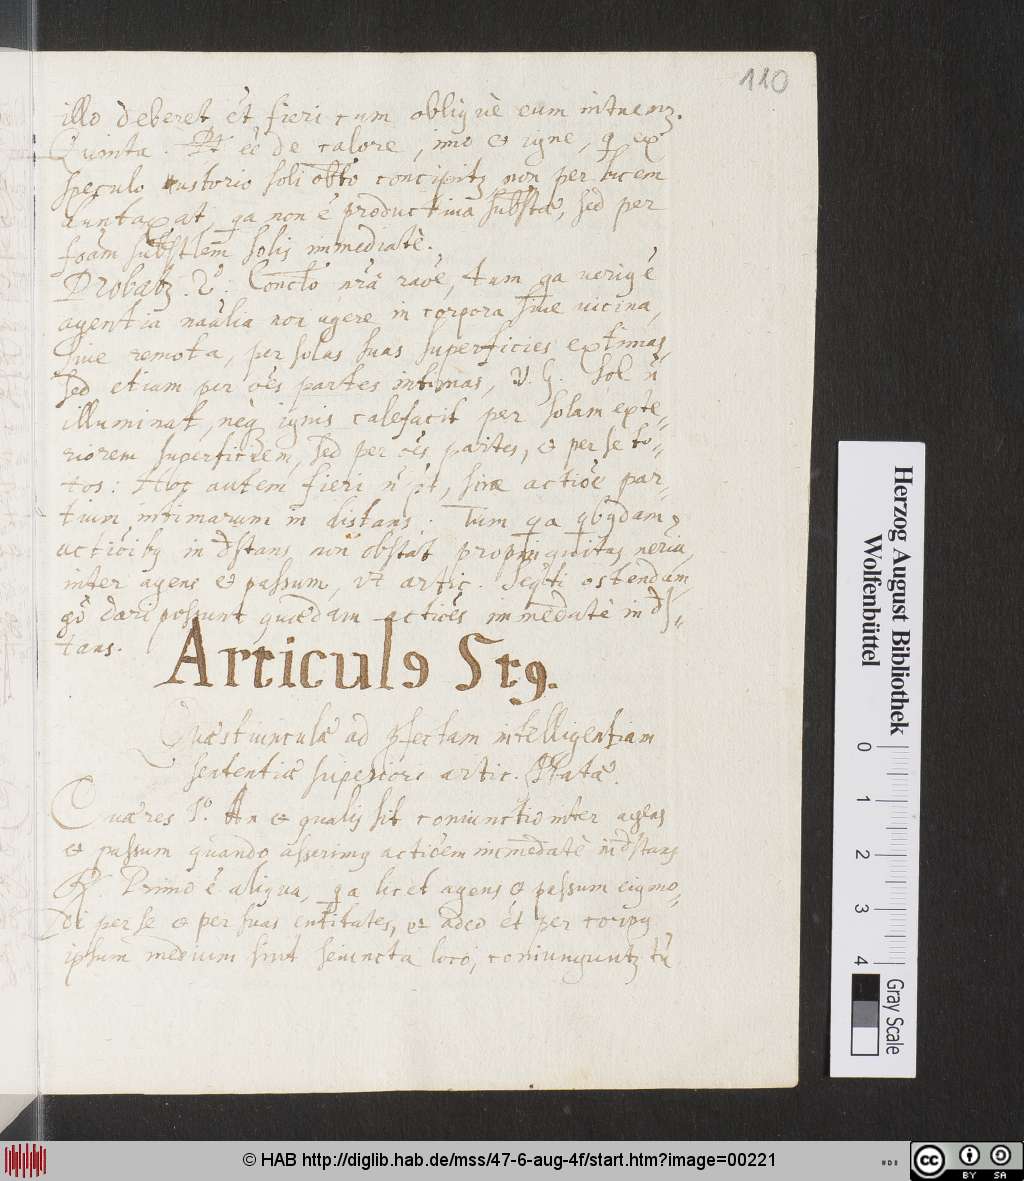 110
illo deberet ēt fieri cum obliquè eum intuenꝫ.
Quinta. Pt ēe de calore, imo et igne, q ex
speculo ustorio soli obto concipitꝫ non per lucem
duntaxat, qa non ē productiua substæ, sed per
foām substlem solis immediatè.
Probatꝫ 2º. Conclo nrā raōe, tum qa
agentia naūlia noī agere in corpora siue uicina,
siue remota, per solas suas superficies extimas,
sed etiam per oēs partes intimas, V. G. Sol ñ
illuminat, neqꝫ ignis calefacit per solam exte,,
riorem superficiem, sed per oēs partes, et per se to,,
tos: Hoc autem fieri ñ pt, sine actiōe par,,
tium intimarum in distans: Tum qa qbꝰdam
actioibꝰ in dstans non obstat propinquitas
inter agens et passum, vt artic. Seqti ostendam,,
go dari possunt quædam actiōes immediatè in ds,,
tans.
Articulꝰ 5tꝰ.
Quæstiunculæ ad pfectam intelligentiam
sententiæ superioris artic.
Quæres 1º. An et qualis sit coniunctio inter agens
et passum quando asserimꝰ actiōem immediatè in dstans
R. Primo ē aliqua, qa licet agens et passum eigmo,,
di per se et per suas entitates, et adeo ēt per
ipsum medium sint seiuncta loco, coniungunt tñ
Herzog August Bibliothek
Wolfenbüttel
0 1 2 3 4
Gray Scale
© HAB http://diglib.hab.de/mss/47-6-aug-4f/start.htm?image=00221
cc BY SA